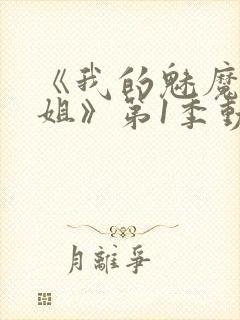 《我的魅魔
姐》第1季動
月離爭